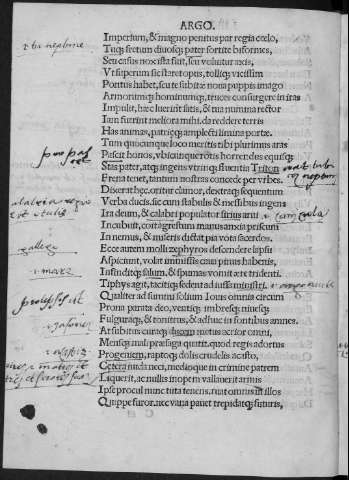 ARGO.
Imperium, & magno penitus par regia cœlo,
Tuq; fretum diuosq; pater sortite biformes,
Seu casus nox ista fuit, seu voluitur axis,
Vt superum sic staret opus, tolliq; vicissim
Pontus habet, seu te subitæ noua puppis imago
Armorumq; hominumq; truces consurgere in iras
Impulit, hæc luerint satis, & tua numina rector
Iam fuerint meliora mihi. da reddere terris
Has animas, patriæq; amplecti limina portæ.
Tum quocunque loco meritis tibi plurimus aras
Pascit honos, vbicunque rotis horrendus equisq;
Stas pater, atq; ingens vtrinq; fluentia Triton
Frena tenet, tantus nostras concede per vrbes.
Dixerat hæc. oritur clamor, dextræq; sequentum
Verba ducis. sic cum stabulis & messibus ingens
Ira deum, & calabri populator sirius arui
Incubuit, coit agrestum manus anxia priscum
In nemus, & miseris dictat pia vota sacerdos.
Ecce autem molli zephyros descendere lapsu
Aspiciunt, volat immissis caua pinus habenis,
Infinditq; salum, & spumas vomit ære tridenti.
Tiphys agit, tacitiq; sedent ad iussa ministri.
Qualiter ad summi solium Iouis omnis circum
Prona parata deo, ventiq; imbresq; niuesq;
Fulguraq; & tonitrus, & adhuc in fontibus amnes.
At subitus curaq; ducem metus acrior omni,
Mensq; mali præsaga quatit. quod regis adortus
Progeniem, raptoq; dolis crudelis acasto,
Cetera nuda neci, medioque in crimine patrem
Liquerit, ac nullis inopem vallauerit armis
Ipse procul nunc tuta tenens. ruat omnis in illos
Quippe furor. nec vana pauet trepidatq; futuris,